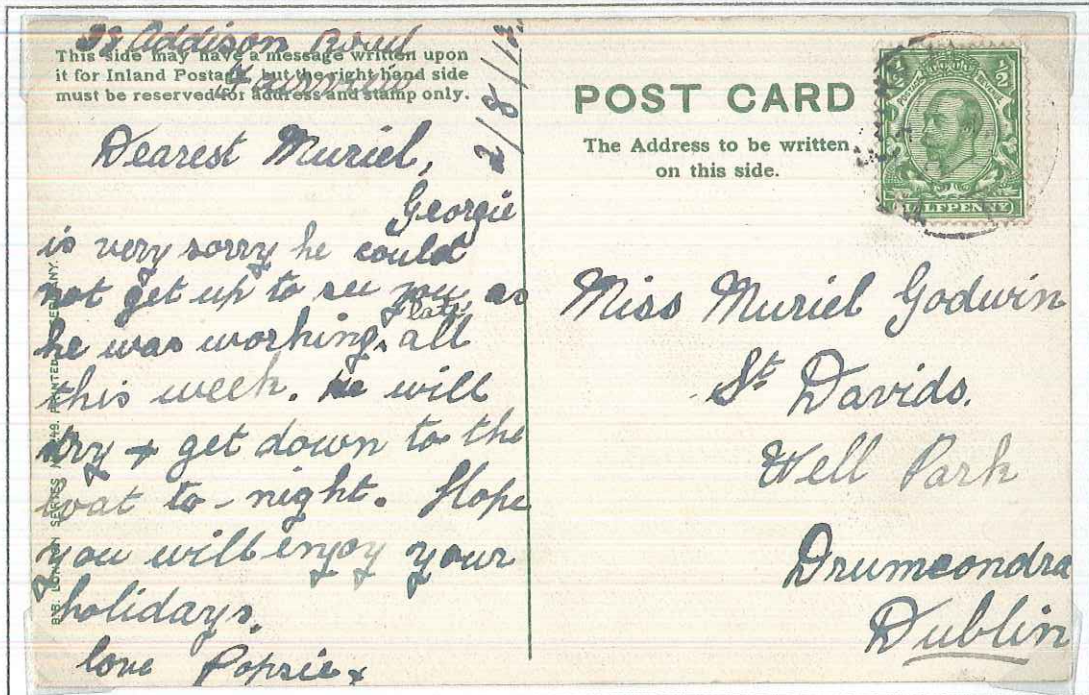 Addison Road
2/8/12
This side may have a message written upon
it for Inland Postage, but the right hand side
must be reserved for address and stamp only.
Dearest Muriel,
Georgie
is very sorry he could
not get up to see you, as
he was working late all
this week. He will
try + get down to the
boat to-night. Hope
you will enjoy your
holidays.
love Popsie x
POST CARD
The Address to be written
on this side.
POSTAGE REVENUE
HALFPENNY
Miss Muriel Godwin
St Davids.
Well Park
Drumcondra
Dublin